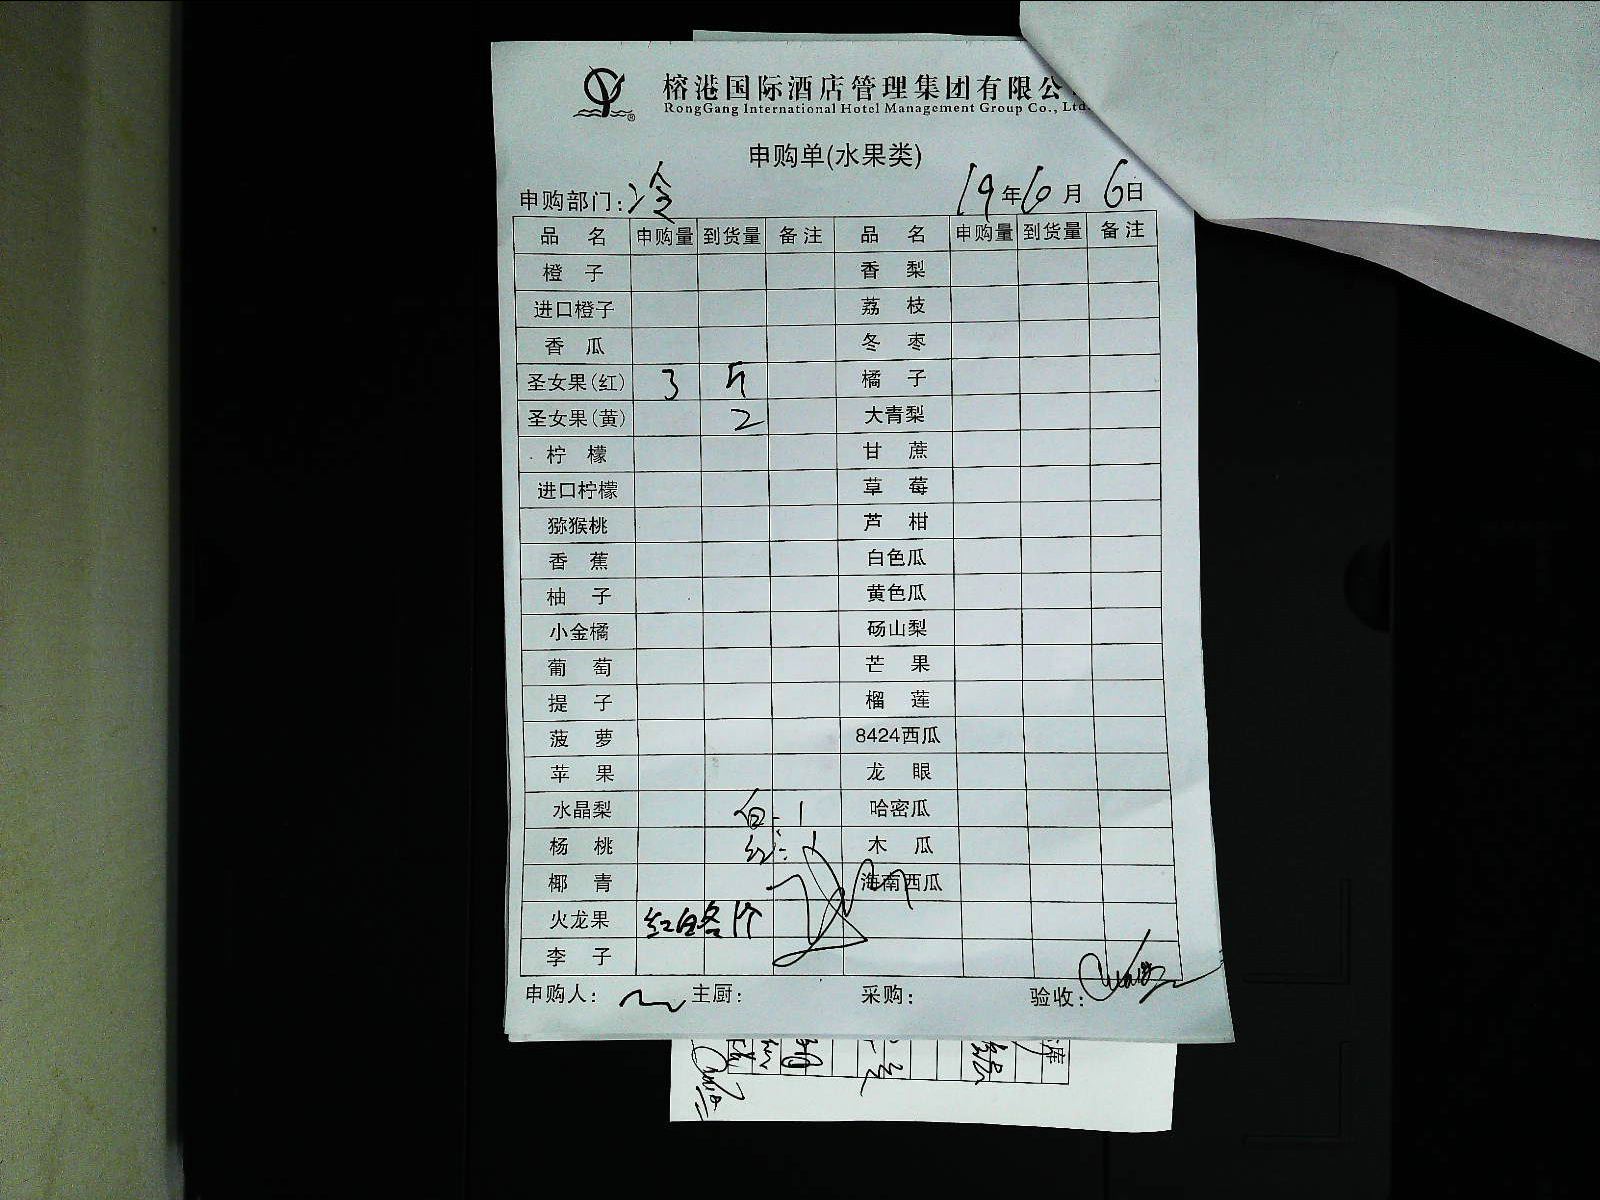 榕港国际酒店管理集团有限公
RongGang International Hotel Management Group Co., Ltd.
申购单(水果类)
申购部门:冷 19年6月6日
品名 申购量 到货量 备注 品名 申购量 到货量 备注
橙子 香梨
进口橙子 荔枝
香瓜 冬枣
圣女果(红) 3 5 橘子
圣女果(黄) 2 大青梨
柠檬 甘蔗
进口柠檬 草莓
猕猴桃 芦柑
香蕉 白色瓜
柚子 黄色瓜
小金橘 砀山梨
葡萄 芒果
提子 榴莲
菠萝 8424西瓜
苹果 龙眼
水晶梨 白:1 哈密瓜
杨桃 红:1 木瓜
椰青 海南西瓜
火龙果 红白各1个
李子
申购人: 主厨: 采购: 验收: